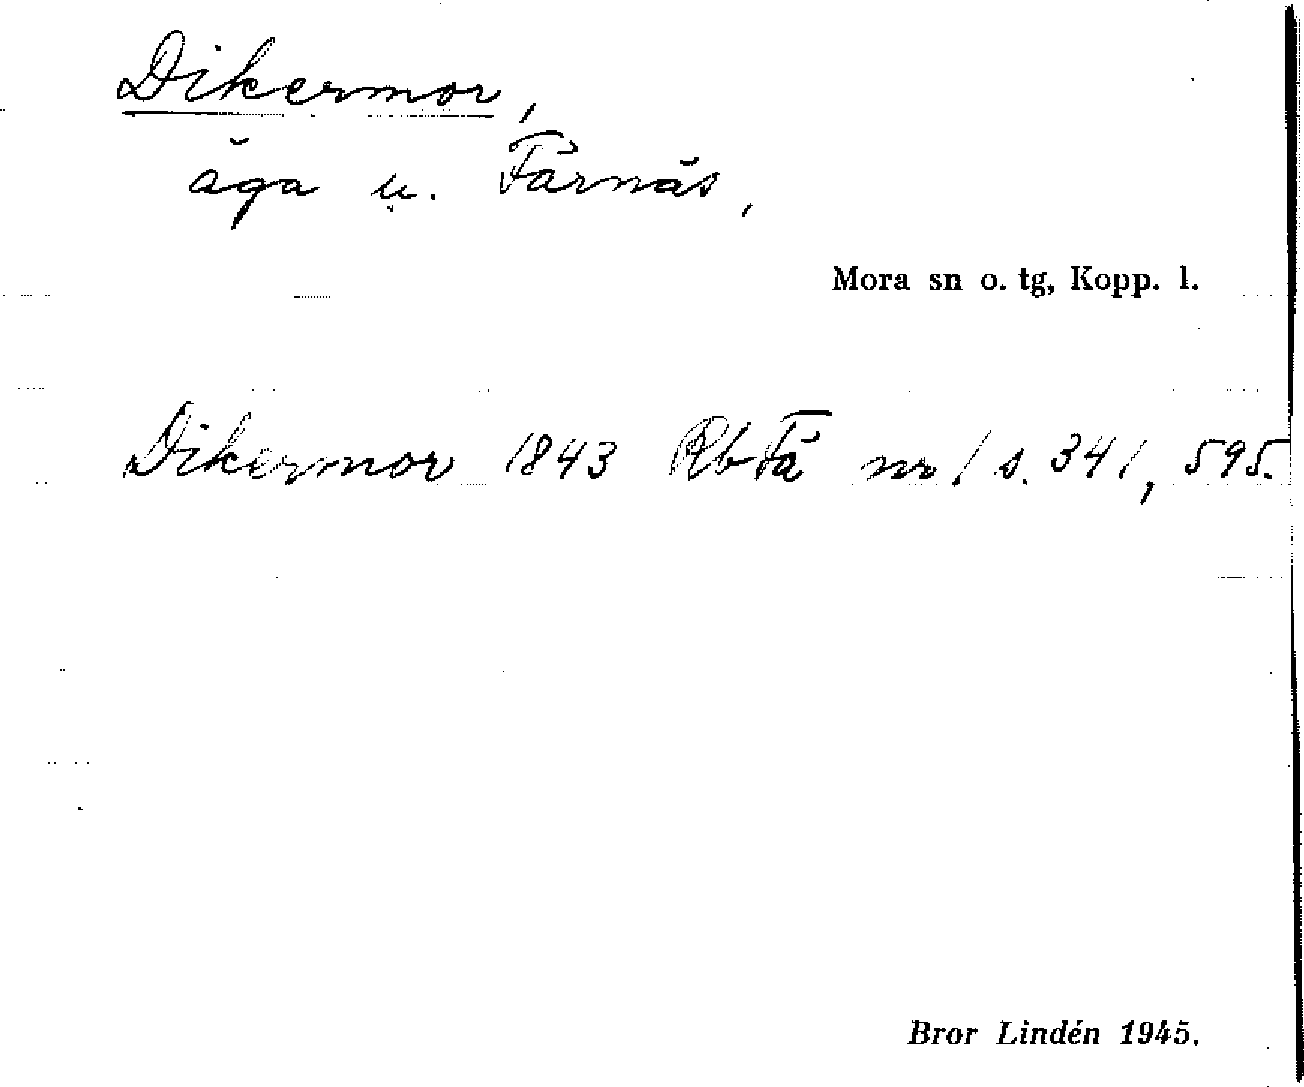 Dikermor,
äga u. Färnäs,
Mora sn o. tg, Kopp. l.
Dikermor 1843 RbFä nr 1 s. 341, 595.
Bror Lindén 1945.